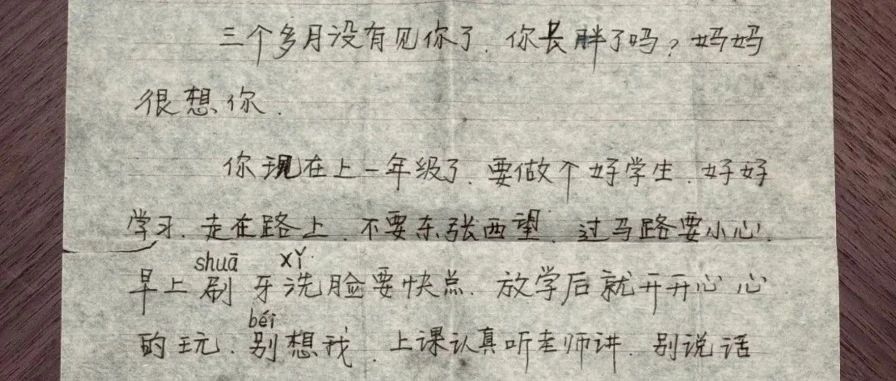 三个多月没有见你了.你长胖了吗?妈妈
很想你.
你现在上一年级了.要做个好学生.好好
学习.走在路上.不要东张西望.过马路要小心.
shuā xǐ
早上刷牙洗脸要快点.放学后就开开心心
béi
的玩.别想我.上课认真听老师讲.别说话